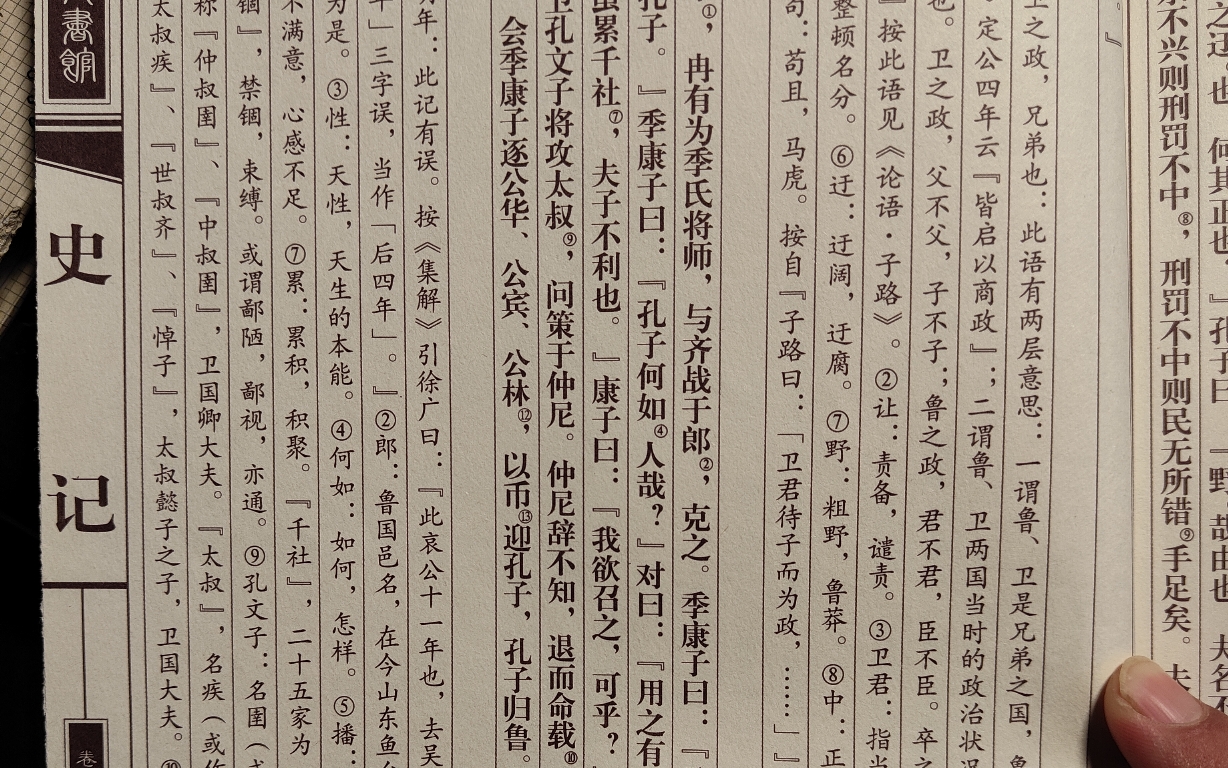 也，何其正也？』孔子曰：『野哉由也！夫名不
不兴则刑罚不中⑧，刑罚不中则民无所错⑨手足矣。夫
』
卫之政，兄弟也：此语有两层意思：一谓鲁、卫是兄弟之国，鲁
定公四年云『皆启以商政』；二谓鲁、卫两国当时的政治状况
也。卫之政，父不父，子不子；鲁之政，君不君，臣不臣。卒之
』按此语见《论语·子路》。②让：责备，谴责。③卫君：指当
整顿名分。⑥迂：迂阔，迂腐。⑦野：粗野，鲁莽。⑧中：正
苟：苟且，马虎。按自『子路曰：「卫君待子而为政，……」』
①，冉有为季氏将师，与齐战于郎②，克之。季康子曰：『
孔子。』季康子曰：『孔子何如④人哉？』对曰：『用之有
虽累千社⑦，夫子不利也。』康子曰：『我欲召之，可乎？
卫孔文子将攻太叔⑨，问策于仲尼。仲尼辞不知，退而命载⑩
会季康子逐公华、公宾、公林⑫，以币⑬迎孔子，孔子归鲁。
年：此记有误。按《集解》引徐广曰：『此哀公十一年也，去吴
年」三字误，当作「后四年」。』②郎：鲁国邑名，在今山东鱼台
为是。③性：天性，天生的本能。④何如：如何，怎样。⑤播：
不满意，心感不足。⑦累：累积，积聚。『千社』，二十五家为
锢』，禁锢，束缚。或谓鄙陋，鄙视，亦通。⑨孔文子：名圉（
称『仲叔圉』、『中叔圉』，卫国卿大夫。『太叔』，名疾（或作
太叔疾』、『世叔齐』、『悼子』，太叔懿子之子，卫国大夫。⑩
書館
史记
卷